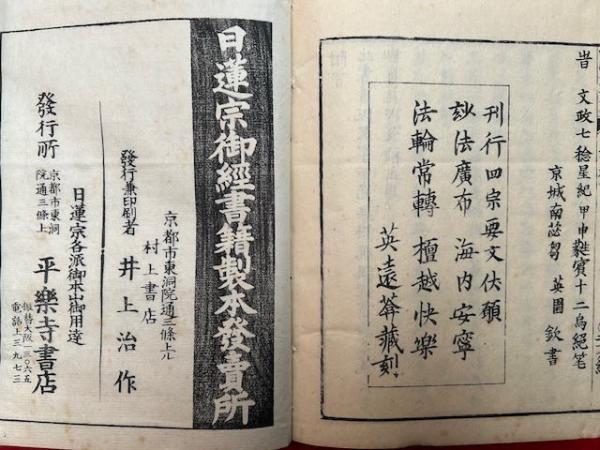 旹 文政七稔星紀甲申蕤賓十二烏絕笔
京城南苾芻 英園 欽書
刊行四宗要文伏願
玅法廣布 海内安寧
法輪常轉 檀越快樂
英遠 藏刻
日蓮宗御經書籍製本發賣所
京都市東洞院通三條上ル
村上書店
發行兼印刷者 井上治作
日蓮宗各派御本山御用達
發行所 京都市東洞
院通三條上 平樂寺書店
振替大阪 三〇六五
電話上三九七三